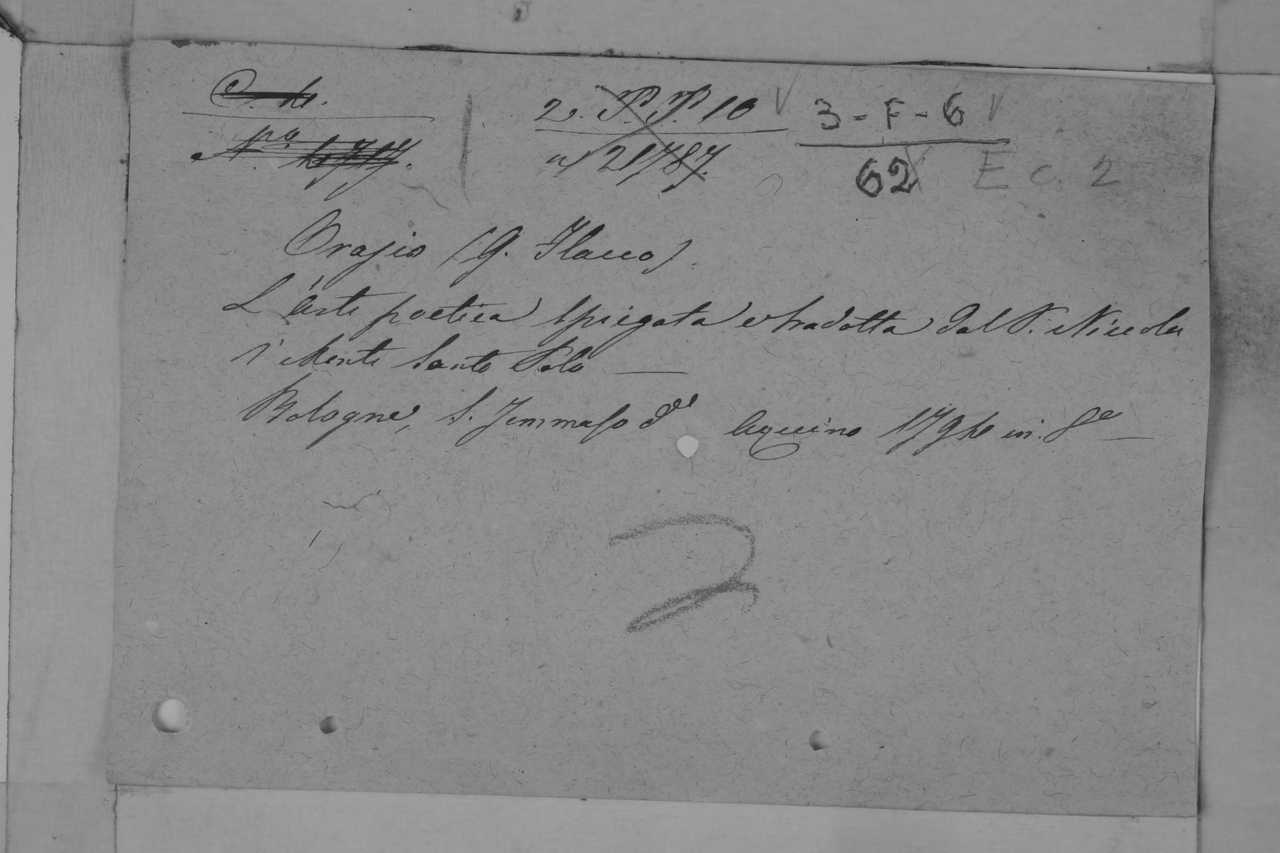 2. P. P. 10
3 - F - 6
n 21787.
62
E c. 2
Orazio (Q. Flacco).
L'arte poetica spiegata e tradotta dal P. Niccola
Monti Santo Polo —
Bologna, S. Tommaso d' Aquino in 8º —
2